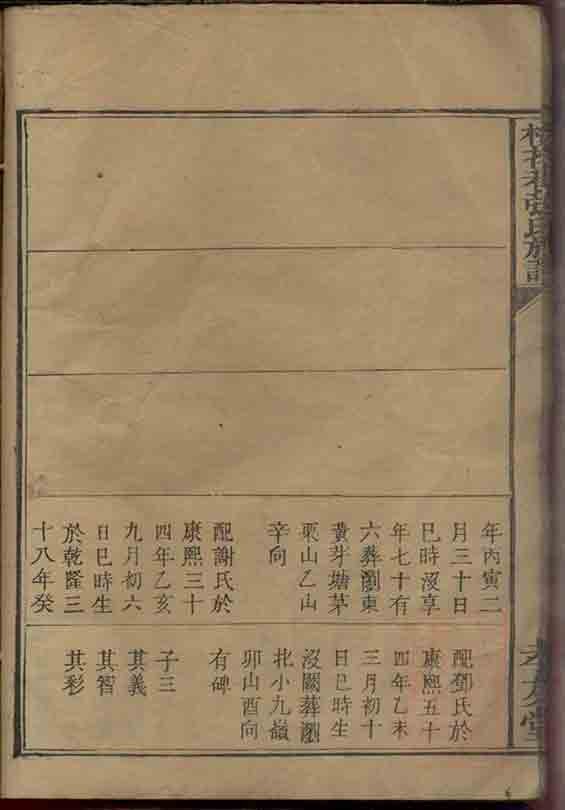 氏族譜
年丙寅二
月三十日
巳時沒享
年七十有
六葬瀏東
黃芽塘茅
栗山乙山
辛向
配謝氏於
康熙三十
四年乙亥
九月初六
日巳時生
於乾隆三
十八年癸
配鄧氏於
康熙五十
四年乙未
三月初十
日巳時生
沒闕葬瀏
北小九嶺
卯山酉向
有碑
子三
其義
其智
其彩
孝友堂